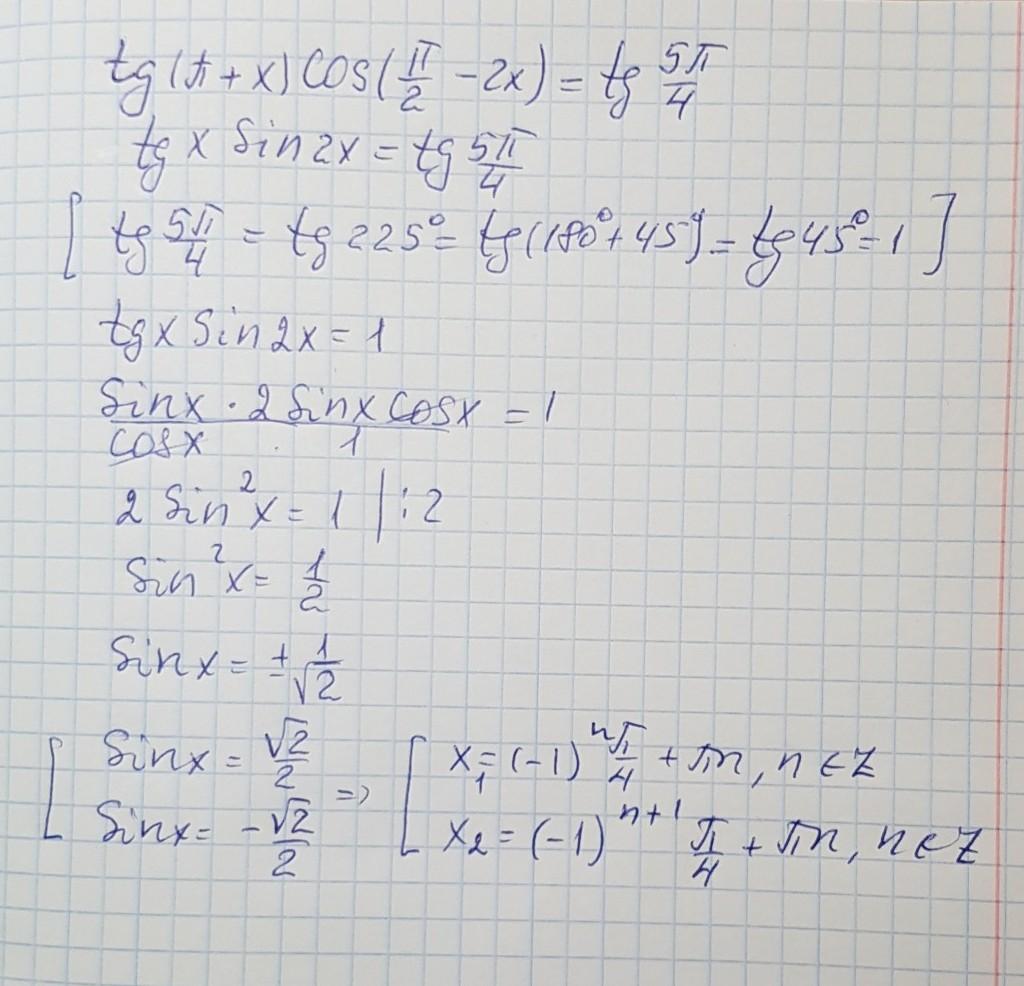 tg(π+x)cos(π/2 −2x) = tg 5π/4
tg x sin2x = tg 5π/4
[ tg 5π/4 = tg 225° = tg(180°+45°) = tg45° = 1 ]
tgx sin2x = 1
sinx · 2 sinx cosx / cosx · 1 = 1
2 sin²x = 1 | :2
sin²x = 1/2
sinx = ± 1/√2
[ sinx = √2/2 => [ x₁ = (−1)ⁿ π/4 + πn, n ∈ Z
sinx = −√2/2 x₂ = (−1)ⁿ⁺¹ π/4 + πn, n ∈ Z